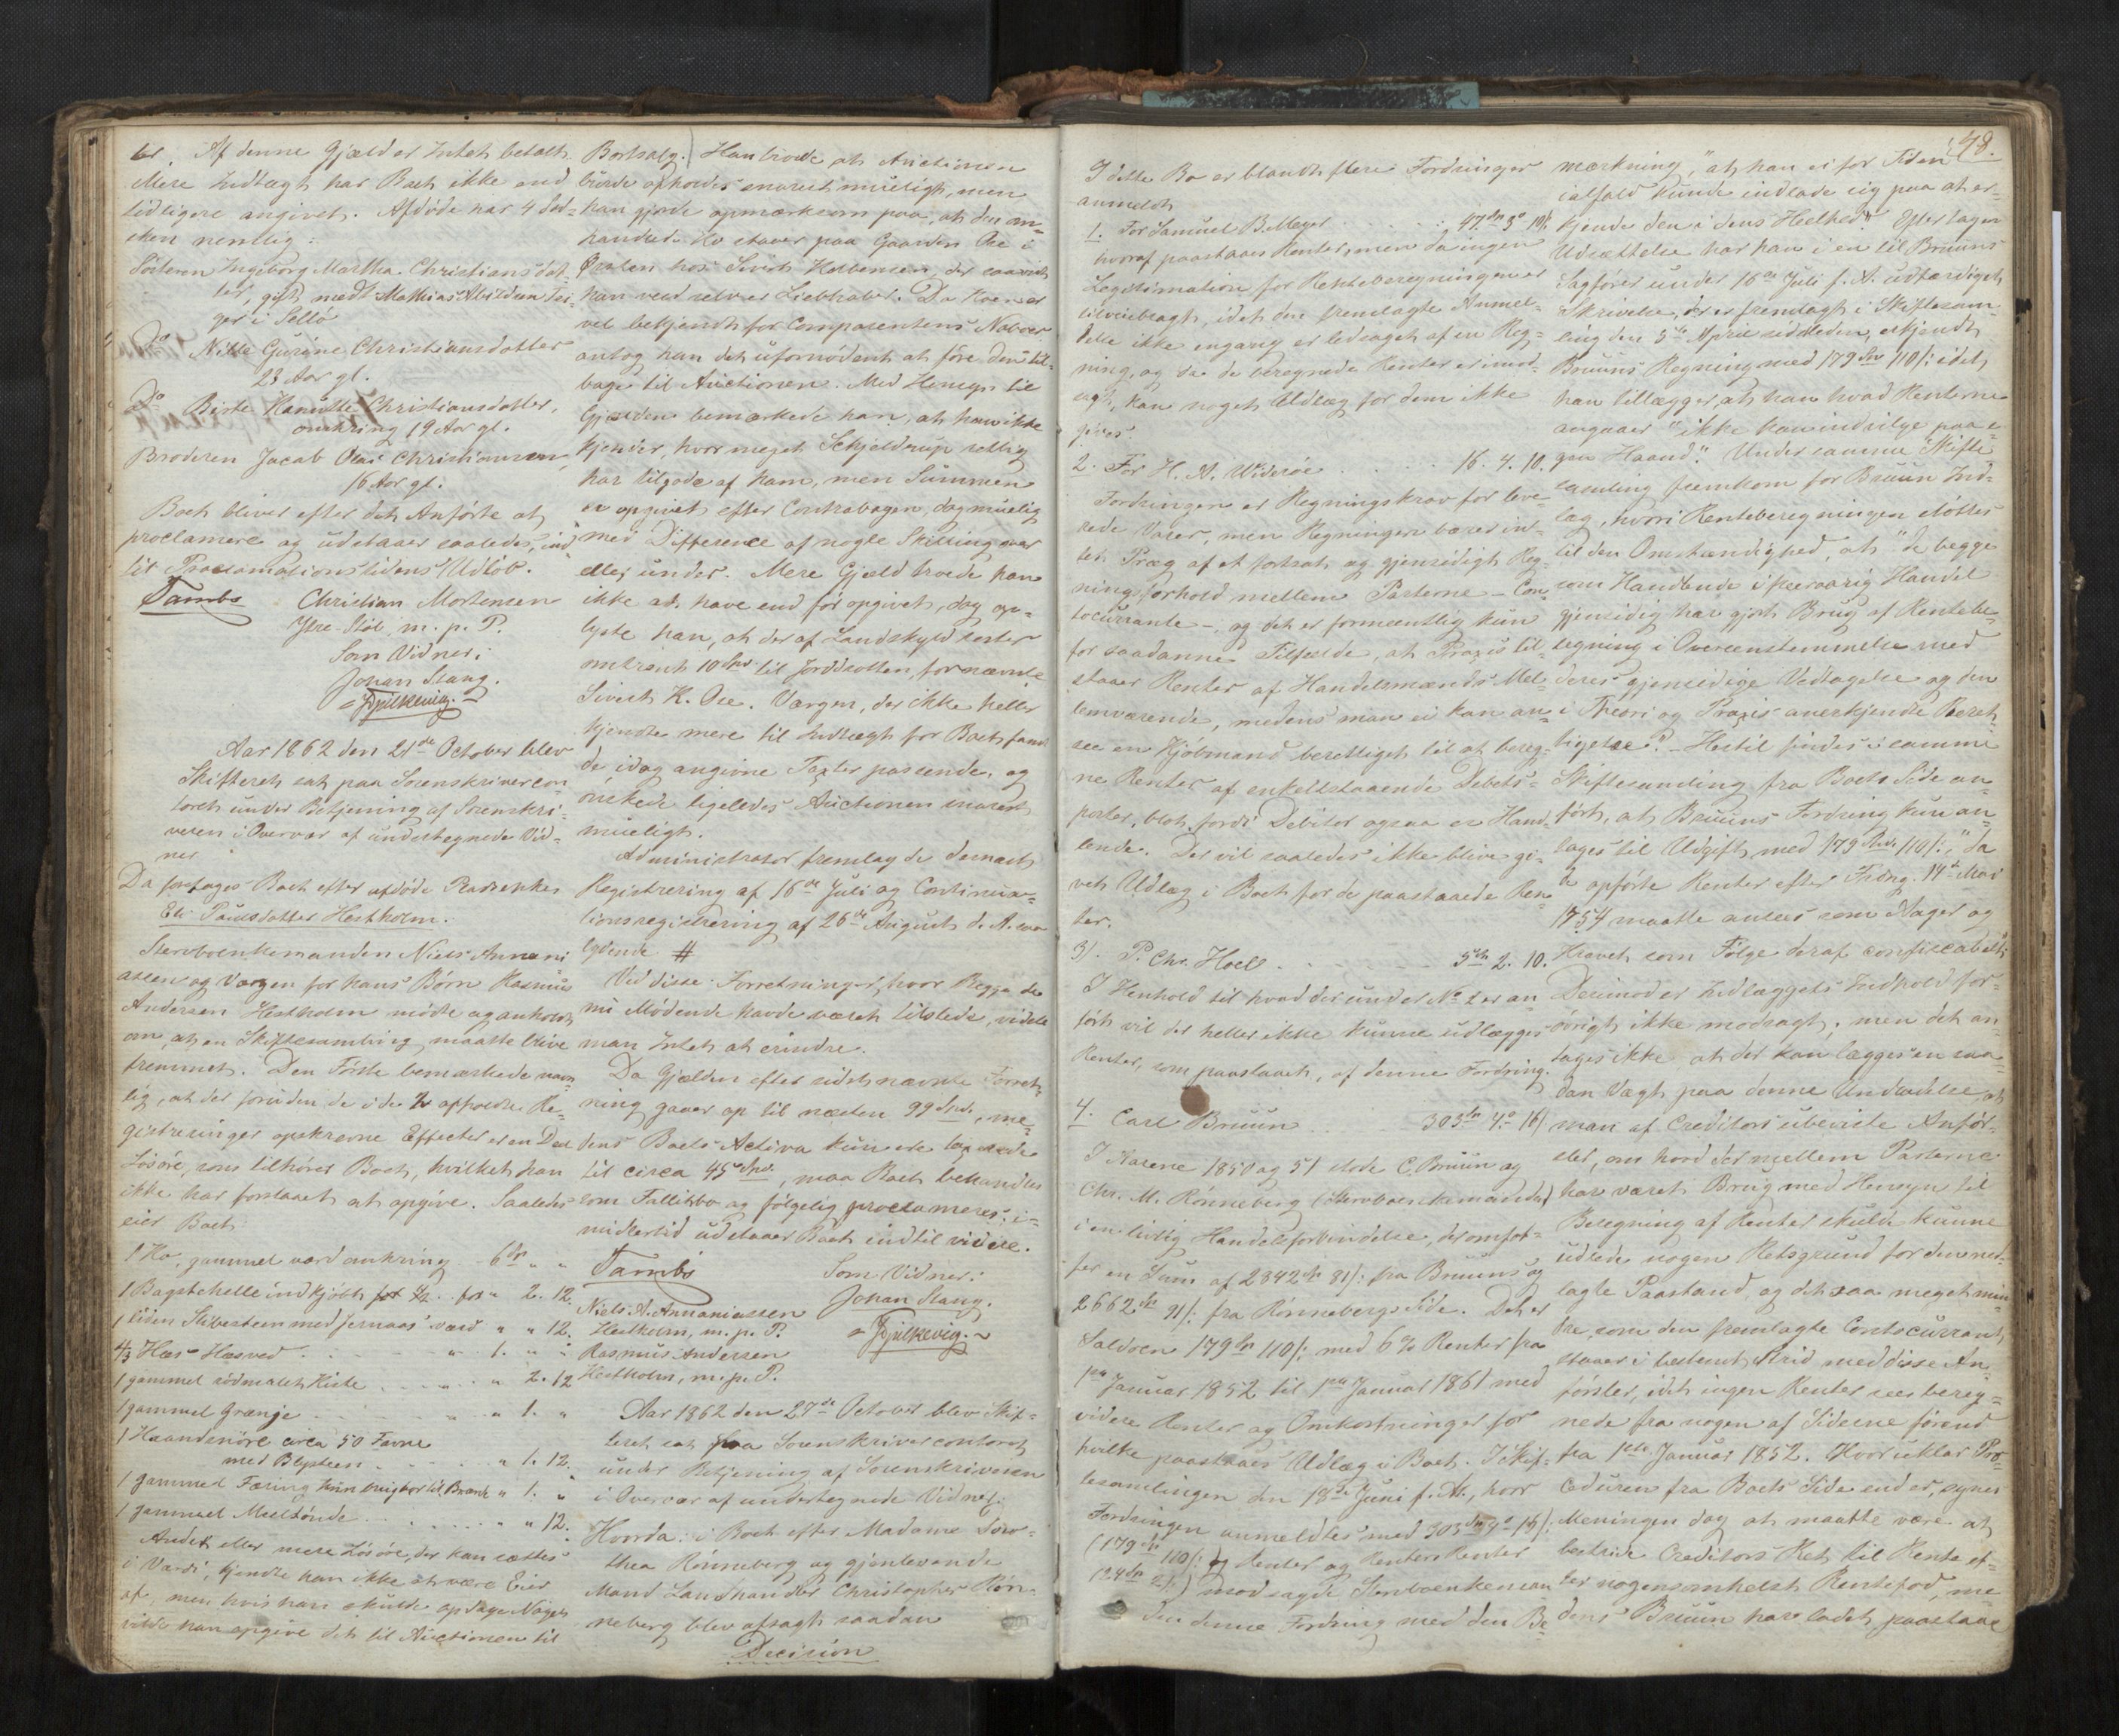 ter. Af denne Gjæld er Intet betalt.
Mere Indtægt har Boet ikke end
tidligere angivet. Afdøde har 4 Sød-
sken nemlig:
Søsteren Ingeborg Martha Christiansdat-
ter, gift medt Mathias Abildsen Tei-
ger i Sellö
Do Nille Gurine Christiansdatter
23 Aar gl.
Do Birte Hanutte Christiansdatter,
omkring 19 Aar gl.
Broderen Jacob Olai Christiansen,
16 Aar gl.
Boet bliver efter det Anførte at
proclamere og udstaaer saaledes ind
til Proclamationstidens Udløb.
Tambs Christian Mortensen
Ytre-Stöl, m. p. P.
Som Vidner:
Johan Stang.
Fylkevig.
Aar 1862 den 21de October blev
Skifteret sat paa Sorenskrivercon
toret under Betjening af Sorenskri-
veren i Overvær af undertegnede Vid-
ner
Da foretages Boet efter afdøde Radsenkes
Eli Paulsdatter Hestholm.
Stervboenkemanden Niels Annani
assen og Værgen for hans Børn Rasmus
Andersen Hestholm mødte og anholdt
om, at en Skiftesamling maatte blive
fremmet. Den Første bemærkede nem
lig, at der foruden de i de to afholdte Re-
gistreringer opskrevne Effecter er en Deel
Løsøre, som tilhører Boet, hvilket han
ikke har forstaaet at opgive. Saaledes
eier Boet
1 Ko, gammel værd omkring 6 Spd " "
1 Bagstehelle indkjöbt for " 2. 12.
1 liden Slibesteen med Jernaas værd " " 12.
4/3 Hæs Hæsved " 1. "
1 gammel rödmalet Kiste " 2. 12
1 gammel Grænje " 1. "
1 Haandsnöre circa 50 Favne
med Blysteen " 1. 12.
1 gammel Færing kun brugbar til Brænde " 1. "
1 gammel Meeltönde " " 12.
Andet eller mere Løsøre, der kan sættes
i Værdi, kjendte han ikke at være Eier
af, men hvis han skulde opdage Noget
vilde han opgive det til Auctionen til
Bortsalg. Han troede at Auctionen
burde afholdes snarest mueligt, men
han gjorde opmærksom paa, at den om-
handlede Ko staaer paa Gaarden Øse i
Ørsten hos Sivert Helbensen, der saavidt
han veed selv er Liebhaber. Da Koen er
vel bekjendt for Comparentens Naboer
antog han det ufornødent at føre den til-
bage til Auctionen. Med Hensyn til
Gjælden bemærkede han, at han ikke
kjender, hvor meget Schjeldrup rettig
har tilgode af ham, men Summen
er opgivet efter Contrabogen, dog muelig
med Difference af nogle Skilling over
eller under. Mere Gjæld troede han
ikke at have end før opgivet, dog op-
lyste han, at der af Landskyld rester
omtrent 10 Spd til Jorddrotten, fornævnte
Sivert K. Øse. Værgen, der ikke heller
kjendte mere til Indtægt for Boet, fandt
de idag angivne Taxter passende, og
ønskede ligeledes Auctionen snarest
mueligt.
Administrator fremlagde dernæst
Registrering af 16de Juli og Continua-
tionsregistrering af 26de August d. A. saa
lydende #
Ved disse Forretninger, hvor Begge de
nu Mödende havde været tilstede, vidste
man Intet at erindre.
Da Gjælden efter sidstnævnte Forret-
ning gaaer op til næsten 99 Spd., me-
dens Boets Activa kun ere taxerede
til circa 45 Spd., maa Boet behandles
som Fallitbo og følgelig proclameres; i-
midlertid udstaaer Boet indtil videre.
Tambs Som Vidner:
Niels A. Annaniassen Johan Stang.
Hestholm, m. p. P. Fylkevig.
Rasmus Andersen
Hestholm, m. p. P.
Aar 1862 den 27de October blev Skif-
teret sat paa Sorenskrivercontoret
under Betjening af Sorenskriveren
i Overvær af undertegnede Vidner.
Hvorda: i Boet efter Madame Doro-
thea Rönneberg og gjenlevende
Mand Landhandler Christopher Rön-
neberg blev afsagt saadan
Decision
48.
I dette Bo er blandt flere Fordringer
anmeldt
1. For Samuel B. Meyer 47 Spd 3o 19/:
hvoraf paastaaes Renter, men da ingen
Legitimation for Renteberegningen er
tilveiebragt, idet den fremlagte Anmel-
delse ikke engang er ledsaget af en Reg-
ning, og da de beregnede Renter er imod-
sagt, kan noget Udlæg for dem ikke
gives.
2. For H. N. Widerøe 16. 4. 10.
Fordringen er Regningskrav for leve-
rede Varer, men Regningen bærer in-
tet Præg af et fortsat og gjensidigt Reg
ningsforhold mellem Parterne - Con-
tocurrante -, og det er formeentlig kun
for saadanne Tilfælde, at Praxis til-
staaer Renter af Handelsmænds Mel-
lemværende, medens man ei kan an-
see en Kjöbmand berettiget til at bereg-
ne Renter af enkeltstaaende Debets-
poster, blot fordi Debitor ogsaa er Hand-
lende. Der vil saaledes ikke blive gi-
vet Udlæg i Boet for de paastaaede Ren
ter.
3). P. Chr. Hoel 5 Spd 2. 10.
I Henhold til hvad der under No 2 er an
ført vil der heller ikke kunne udlægges
Renter, som paastaaet, af denne Fordring.
4. Carl Bruun 303 Spd 4o 16/
I Aarene 1850 og 51 stode C. Bruun og
Chr. M. Rönneberg (Stervboenkemanden)
i en livlig Handelsforbindelse, der omfat-
ter en Sum af 2842 Spd 81/: fra Bruuns og
2662 Spd 91/: fra Rönnebergs Side. Det er
Saldoen 179 Spd 110/: med 6 % Renter fra
1ste Januar 1852 til 1ste Januar 1861 med
videre Renter og Omkostninger for
hvilke paastaaes Udlæg i Boet. I Skif-
tesamlingen den 18de Juni f. A., hvor
Fordringen anmeldtes med 303 Spd 4o 16/:
(179 Spd 110/: og Renter og Renters Renter
124 Spd 2/:) modsagde Stervboenkeman
den denne Fordring med den Be-
mærkning, "at han ei for Tiden
ialfald kunde indlade sig paa at er-
kjende den i dens Heelhed". Efter tagen
Udsættelse har han i en til Bruuns
Sagfører under 16de Juli f. A. udfærdiget
Skrivelse, der er fremlagt i Skiftesam-
ling den 5te April sidstleden, erkjendt
Bruuns Regning med 179 Spd 110/: idet
han tillægger, at han hvad Renterne
angaaer "ikke kan indvilge paa e-
gen Haand." Under samme Skifte
samling fremkom for Bruun Ind-
læg, hvori Renteberegningen støttes
til den Omstændighed, at "de begge
som Handlende i fleeraarig Handel
gjensidig har gjort Brug af Rentebe-
regning i Overeensstemmelse med
deres gjensidige Vedtagelse og den
i Theori og Praxis anerkjendte Beret
tigelse". - Hertil findes i samme
Skiftesamling fra Boets Side an-
ført, at Bruuns Fordring kun an-
tages til Udgift med 179 Spd 110/:, "da
de opførte Renter efter Frdng. 14de Mai
1754 maatte ansees som Aager og
Kravet som Følge deraf confiscabelt".
Derimod er Indlæggets Indhold for-
øvrigt ikke modsagt; men det an-
tages ikke at der kan lægges en saa-
dan Vægt paa denne Undladelse, at
man af Creditors ubeviste Anfør-
sler, om hvad der mellem Parterne
har været Brug med Hensyn til
Beregning af Renter skulde kunne
udlede nogen Retsgrund for den ned-
lagte Paastand, og det saa meget min-
dre, som den fremlagte Contocurrant
staaer i bestemt Strid med disse An-
førsler, idet ingen Renter sees bereg-
nede fra nogen af Siderne førend
fra 1ste Januar 1852. Hvor uklar Pro-
ceduren fra Boets Side end er, synes
Meningen dog at maatte være at
bestride Creditors Ret til Rente ef-
ter nogensomhelst Rentefod, me-
dens Bruun har ladet paastaae